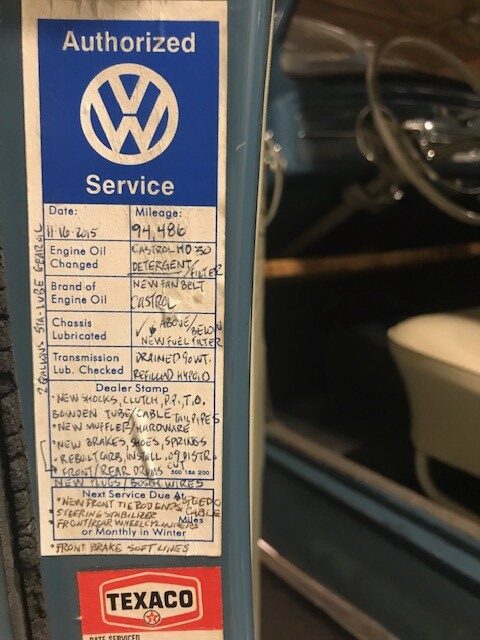 Authorized
VW
Service
Date: Mileage:
11-16-2015 94,486
Engine Oil Changed CASTROL HD 30 DETERGENT/FILTER
Brand of Engine Oil NEW FAN BELT CASTROL
Chassis Lubricated ✓ ABOVE/BELOW NEW FUEL FILTER
Transmission Lub. Checked DRAINED 90WT. REFILLED HYPOID
2 GALLONS STA-LUBE GEAR OIL
Dealer Stamp
•NEW SHOCKS, CLUTCH, P.P., T.O.
BOWDEN TUBE/CABLE TAILPIPES
•NEW MUFFLER/HARDWARE
•NEW BRAKES, SHOES, SPRINGS
•REBUILT CARB, INSTALL .09 DISTR.
•FRONT/REAR DRUMS 500 186 200
NEW PLUGS/BOSCH WIRES
Next Service Due At
•NEW FRONT TIE ROD ENDS
STEERING STABILIZER CABLE
FRONT/REAR WHEEL CYLINDERS Miles
or Monthly in Winter
•FRONT BRAKE SOFT LINES
TEXACO
T
DATE SERVICED